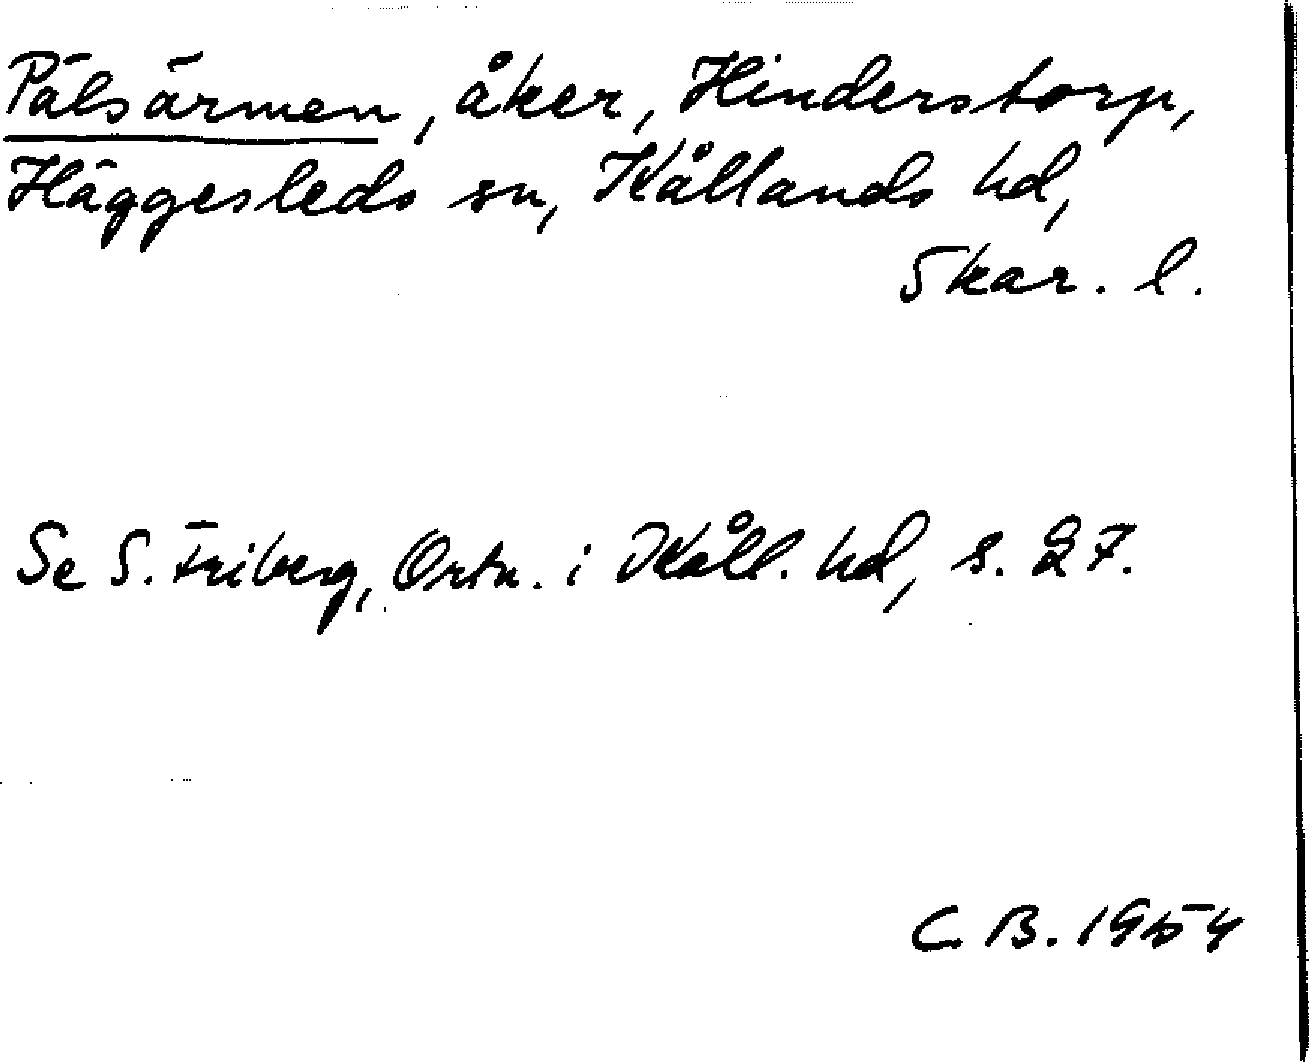 Pälsärmen, åker, Hinderstorp,
Häggesleds sn, Kållands hd,
Skar. l.
Se S. Friberg, Ortn. i Kåll. hd, s. 27.
C. B. 1954